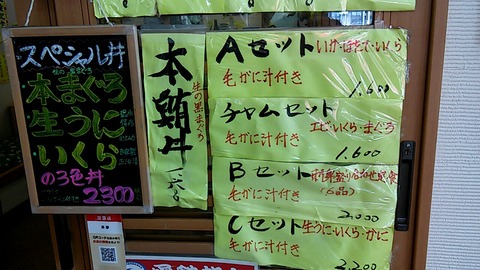 スペシャル丼
生の黒まぐろ
本まぐろ
生うに
いくら
の3色丼
2300
本鮪丼
生の黒まぐろ
Aセット いか・ほたて・いくら
毛がに汁付き
1.600
チャムセット
エビ・いくら・まぐろ
毛がに汁付き
1.600
Bセット 刺身盛り合わせ定食
毛がに汁付き (6品)
2,000
Cセット 生うに・いくら・かに
毛がに汁付き
2,200